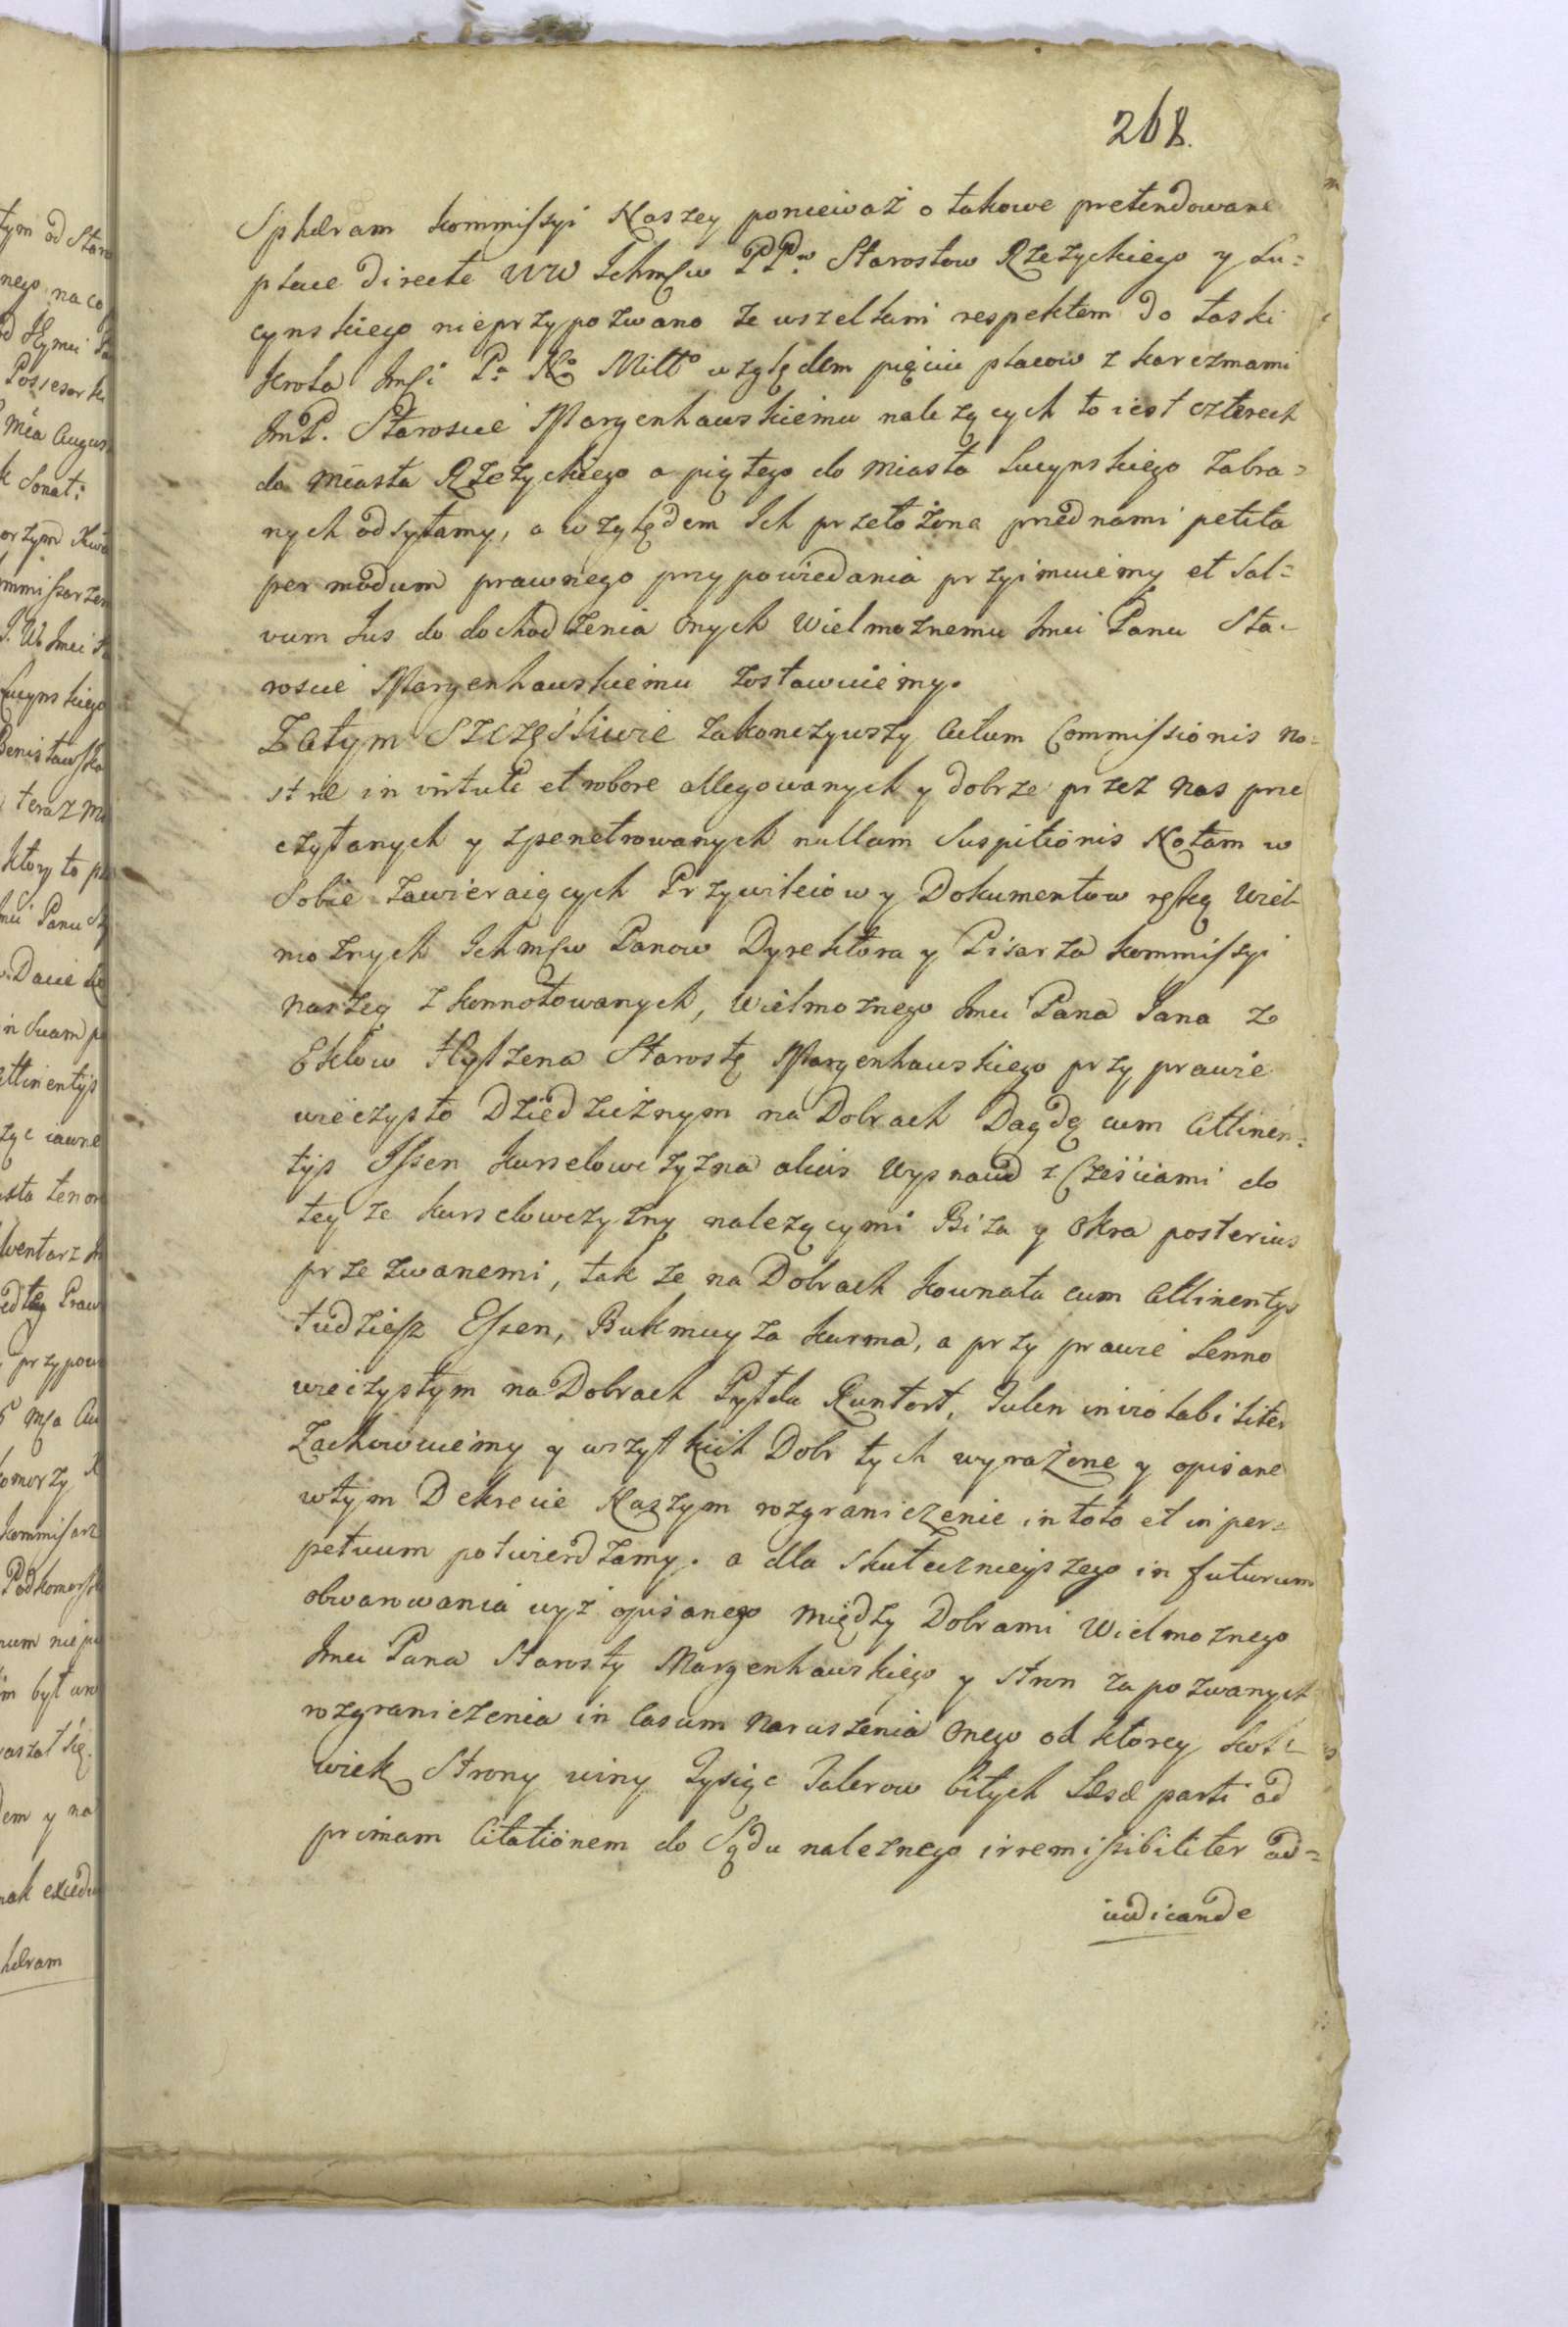 268.
Sphæram Kommiszyi Naszey ponieważ o takowe pretendowane
place directe WW Ichmćw PPw Starostow Rzeżyckiego y Lu=
cynskiego nieprzypozwano ze wszelkim respektem do łaski
Krola Jmći Pa Nº Miłłº względem pięciu placow z karczmami
JmP. Starosicie Margenhauskiemu należących to iest czterech
do miasta Rzeżyckiego a piątego do miasta Lucynskiego zabra=
nych odsyłamy, a względem Ich przełożone przed nami petita
per modum prawnego przypowiedania przyimuiemy et Sal=
vum Ius do dochodzenia onych Wielmożnemu Jmci Panu Sta=
roscie Margenhauskiemu zostawuiemy.
Zatym Szczęśliwie zakonczywszy Actum Commissionis no=
stræ in virtute et robore allegowanych y dobrze przez nas prze
czytanych y zpenetrowanych nullam Suspitionis Notam w
Sobie zawieraiących Przywileiow y Dokumentow ręką Wiel
możnych Ichmćw Panow Dyrektora y Pisarza Kommiszyi
naszey zkonnotowanych, Wielmożnego Jmci Pana Jana z
Eklow Hylzena Starostę Margenhauskiego przy prawie
wieczysto Dziedzicznym na Dobrach Dagdę cum Attinen=
tijs Issen Kurselowczyzna alias Wypnaud z Cześciami do
teyze Kurselowczyzny należącymi Biza y Okra posterius
przezwanemi, tak ze na Dobrach Kownata cum Attinentijs
tudziesz Essen, Bukmuyza Kurma, a przy prawie Lenno
wieczystym na Dobrach Pylda Runtort, Iulen inviolabiliter
Zachowuiemy y wszytkich Dobr tych wyrażone y opisane
wtym Dekrecie Naszym rozgraniczenie in toto et in per=
petuum potwierdzamy. a dla skutecznieyszego in futurum
obwarowania wyż opisanego między Dobrami Wielmożnego
Jmci Pana Starosty Margenhauskiego y Stron zapozwanych
rozgraniczenia in Casum naruszenia onego od ktorey kol=
wiek Strony winy Tysiąc Talerow bitych Læsæ parti ad
primam Citationem do Sądu należnego irremissibiliter ad=
iudicande